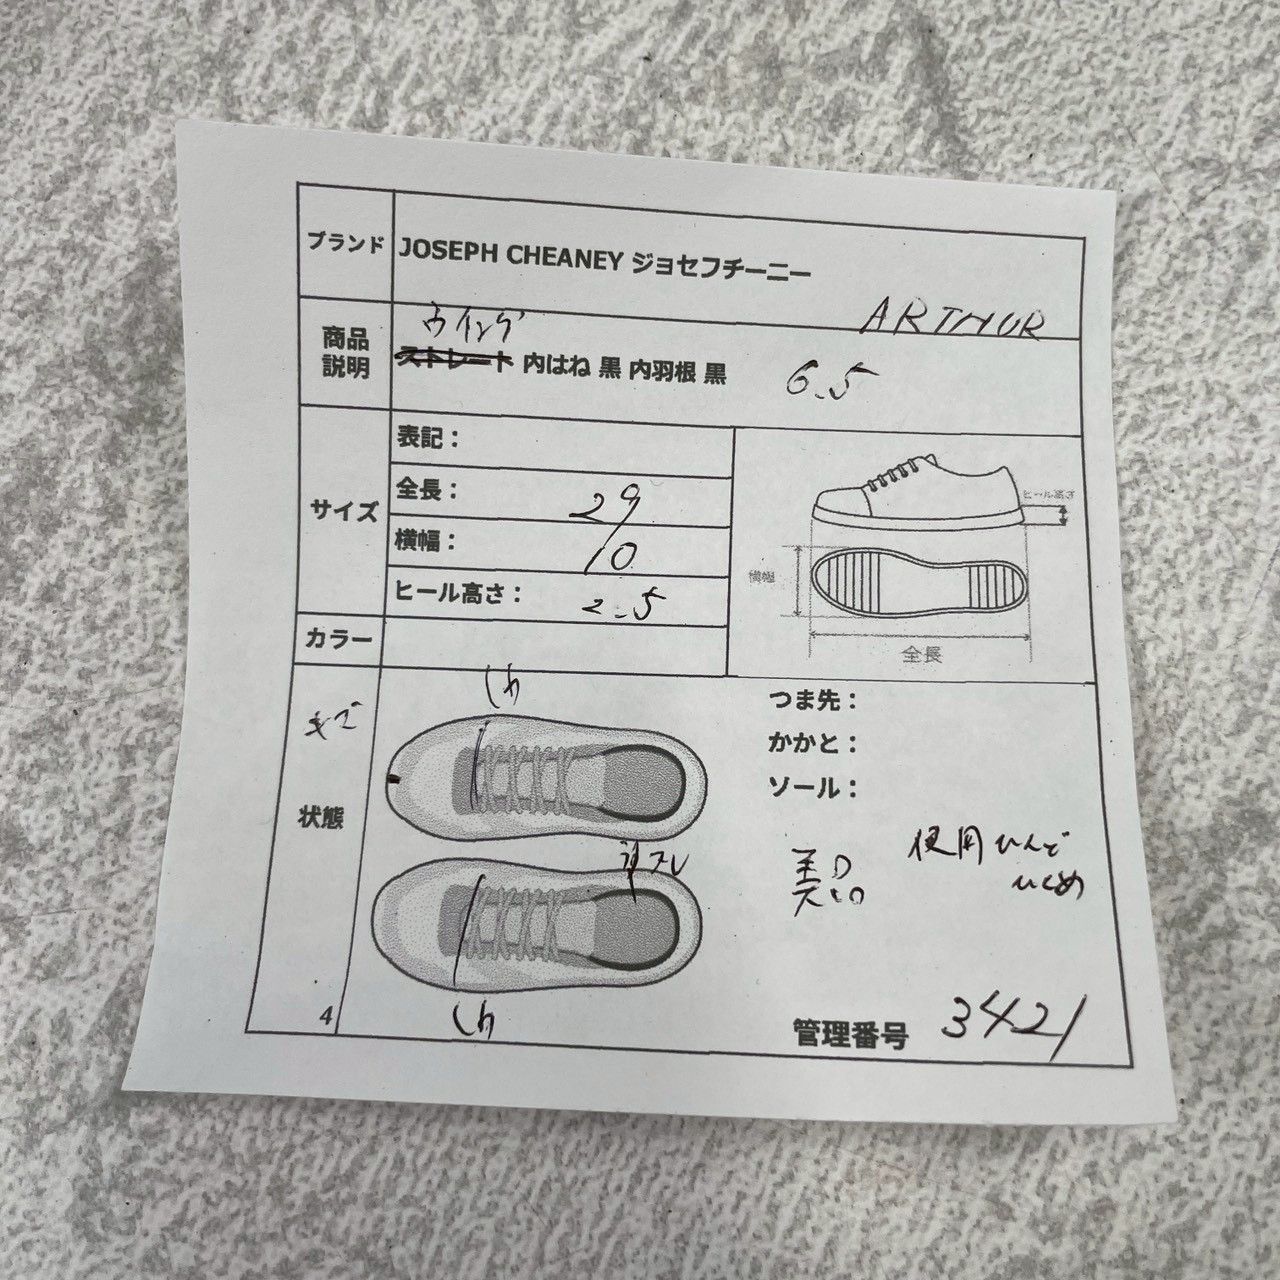 ブランド JOSEPH CHEANEY ジョセフチーニー
ARTHUR
商品説明 ウイング
ストレート 内はね 黒 内羽根 黒 6.5
サイズ
表記：
全長： 29
横幅： 10
ヒール高さ： 2.5
ヒール高さ
横幅
全長
カラー
キズ
状態
しわ
スレ
しわ
つま先：
かかと：
ソール：
美品
使用ひんど
ひくめ
4
管理番号 3421